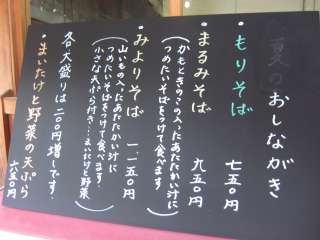 夏のおしながき
・もりそば 七五〇円
・まるみそば 九五〇円
(かもときのこの入ったあたたかい汁に
つめたいそばをつけて食べます)
・みよりそば 一、一五〇円
(山いもの入ったあたたかい汁に
つめたいそばをつけて食べます。
小さな天ぷら付き…まいたけと野菜)
各大盛りは二〇〇円増しです。
・まいたけと野菜の天ぷら
六五〇円